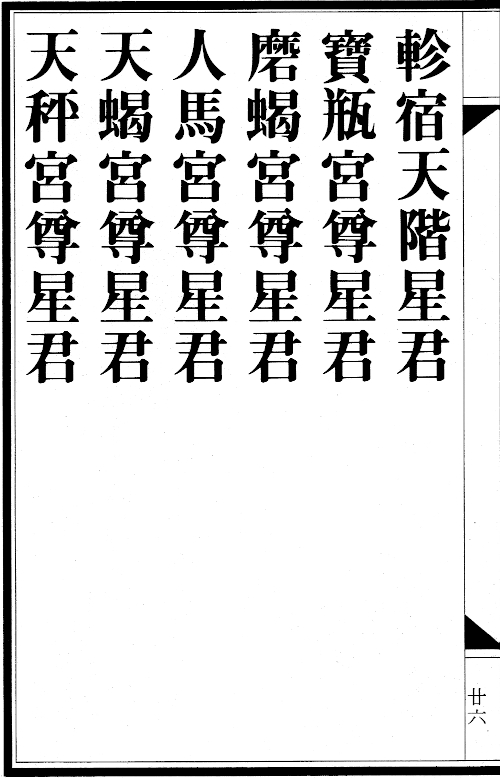 軫宿天階星君
寶瓶宮尊星君
磨蝎宮尊星君
人馬宮尊星君
天蝎宮尊星君
天秤宮尊星君
廿六